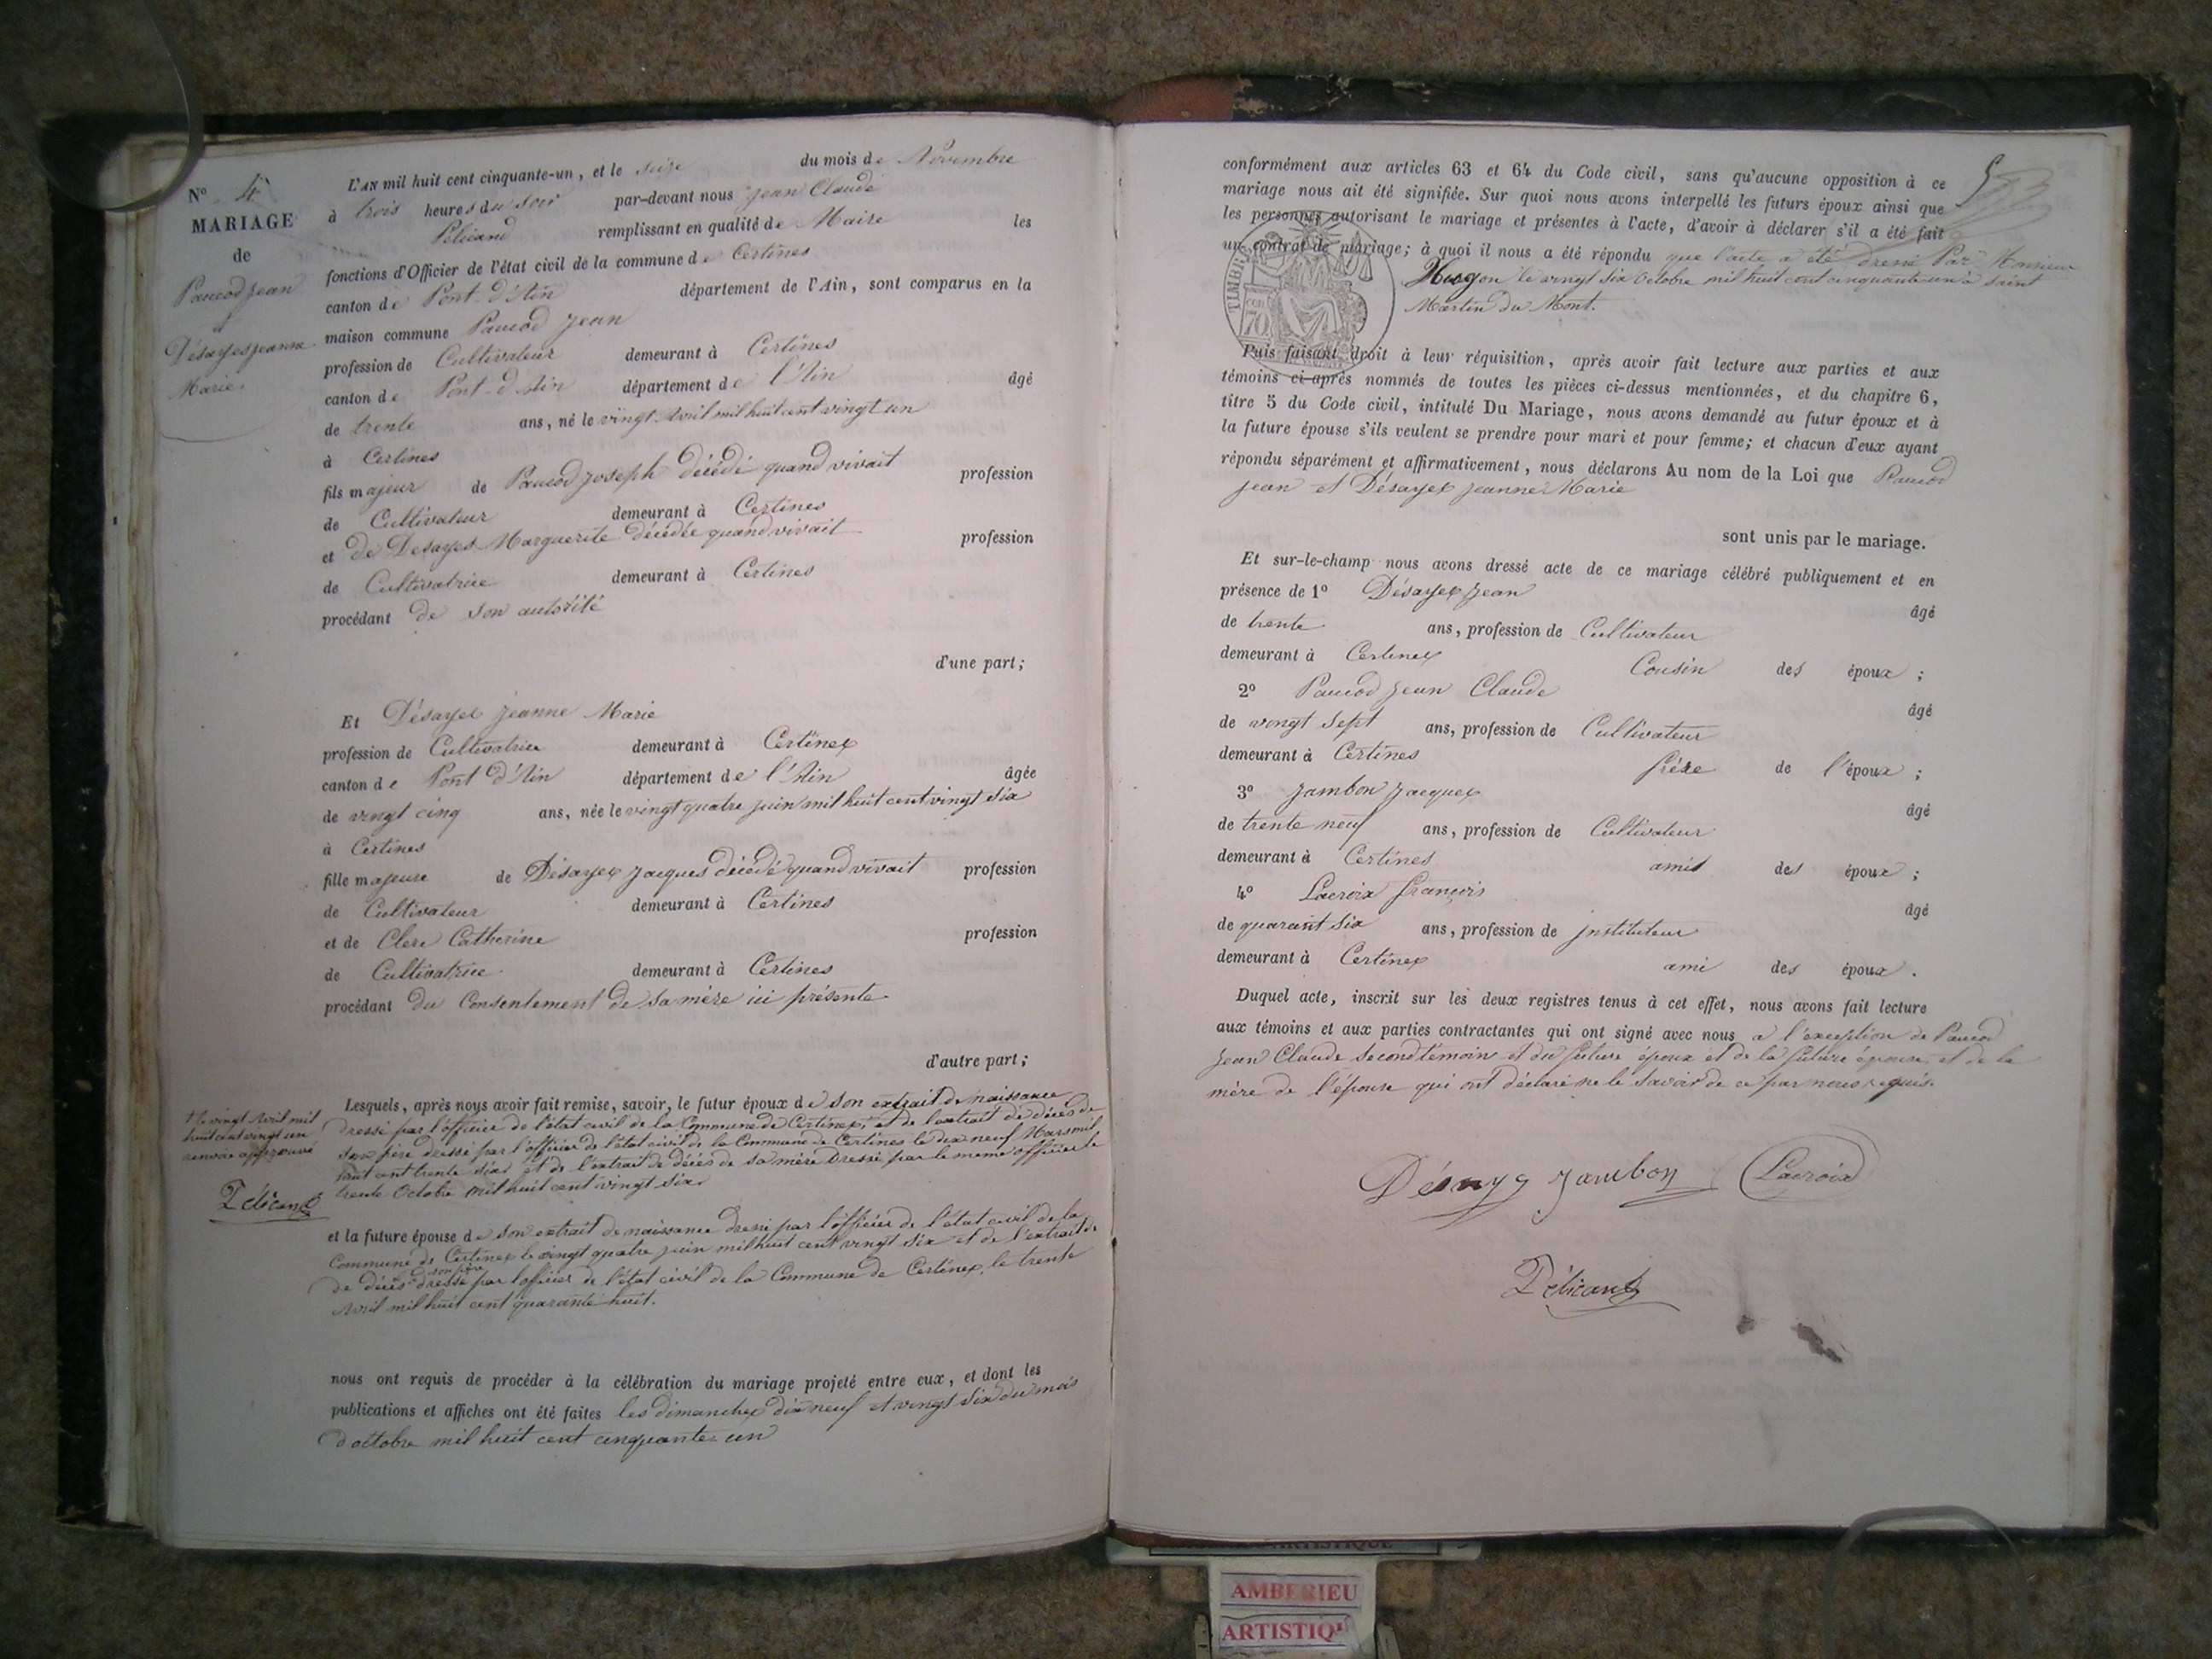 N° 4
MARIAGE
de
Paucod Jean
et
Désayes Jeanne
Marie.
L'AN mil huit cent cinquante-un, et le seize du mois de Novembre
à trois heures du soir par-devant nous Jean Claude
Pélicand remplissant en qualité de Maire les
fonctions d'Officier de l'état civil de la commune de Certines
canton de Pont-d'Ain département de l'Ain, sont comparus en la
maison commune Paucod Jean
profession de Cultivateur demeurant à Certines
canton de Pont-d'Ain département de l'Ain âgé
de trente ans, né le vingt Avril mil huit cent vingt un
à Certines
fils majeur de Paucod Joseph décédé quand vivait profession
de Cultivateur demeurant à Certines
et de Desayes Marguerite décédée quand vivait profession
de Cultivatrice demeurant à Certines
procédant de son autorité
d'une part;
Et Désayes Jeanne Marie
profession de Cultivatrice demeurant à Certines
canton de Pont d'Ain département de l'Ain âgée
de vingt cinq ans, née le vingt quatre juin mil huit cent vingt six
à Certines
fille majeure de Désayes Jacques décédé quand vivait profession
de Cultivateur demeurant à Certines
et de Clerc Catherine profession
de Cultivatrice demeurant à Certines
procédant du Consentement de sa mère ici présente
d'autre part;
Lesquels, après noys avoir fait remise, savoir, le futur époux de son extrait de naissance
dressé par l'officier de l'état civil de la Commune de Certines, et de l'extrait de décès de
son père dressé par l'officier de l'état civil de la Commune de Certines le dix neuf Mars mil
huit cent trente six et de l'extrait de décès de sa mère dressé par le meme officier le
trente Octobre mil huit cent vingt six
le vingt Avril mil
huit cent vingt un
renvoi approuvé
Pélicand
et la future épouse de son extrait de naissance dressé par l'officier de l'état civil de la
Commune de Certines le vingt quatre juin mil huit cent vingt six et de l'extrait de
de décès de son père dressé par l'officier de l'état civil de la Commune de Certines, le trente
Avril mil huit cent quarante huit.
nous ont requis de procéder à la célébration du mariage projeté entre eux, et dont les
publications et affiches ont été faites les dimanches dix neuf et vingt six du mois
d'octobre mil huit cent cinquante un
conformément aux articles 63 et 64 du Code civil, sans qu'aucune opposition à ce
mariage nous ait été signifiée. Sur quoi nous avons interpellé les futurs époux ainsi que
les personnes autorisant le mariage et présentes à l'acte, d'avoir à déclarer s'il a été fait
un contrat de mariage; à quoi il nous a été répondu que l'acte a été dressé Par Monsieur
Hugon le vingt six Octobre mil huit cent cinquante un à Saint
Martin du Mont.
TIMBRE
70
Puis faisant droit à leur réquisition, après avoir fait lecture aux parties et aux
témoins ci-après nommés de toutes les pièces ci-dessus mentionnées, et du chapitre 6,
titre 5 du Code civil, intitulé Du Mariage, nous avons demandé au futur époux et à
la future épouse s'ils veulent se prendre pour mari et pour femme; et chacun d'eux ayant
répondu séparément et affirmativement, nous déclarons Au nom de la Loi que Paucod
Jean et Désayes Jeanne Marie
sont unis par le mariage.
Et sur-le-champ nous avons dressé acte de ce mariage célébré publiquement et en
présence de 1° Désayes Jean âgé
de trente ans, profession de Cultivateur
demeurant à Certines Cousin des époux ;
2° Paucod Jean Claude âgé
de vingt sept ans, profession de Cultivateur
demeurant à Certines frère de l'époux ;
3° Jambon Jacques âgé
de trente neuf ans, profession de Cultivateur
demeurant à Certines amis des époux ;
4° Lacroix François âgé
de quarant six ans, profession de Instituteur
demeurant à Certines ami des époux .
Duquel acte, inscrit sur les deux registres tenus à cet effet, nous avons fait lecture
aux témoins et aux parties contractantes qui ont signé avec nous a l'exception de Paucod
Jean Claude second témoin et du future époux et de la future épouse, et de la
mère de l'épouse qui ont déclaré ne le savoir de ce par nous requis.
Désayes Jambon Lacroix
Pélicand
ARTISTIQUE
AMBERIEU
ARTISTIQ